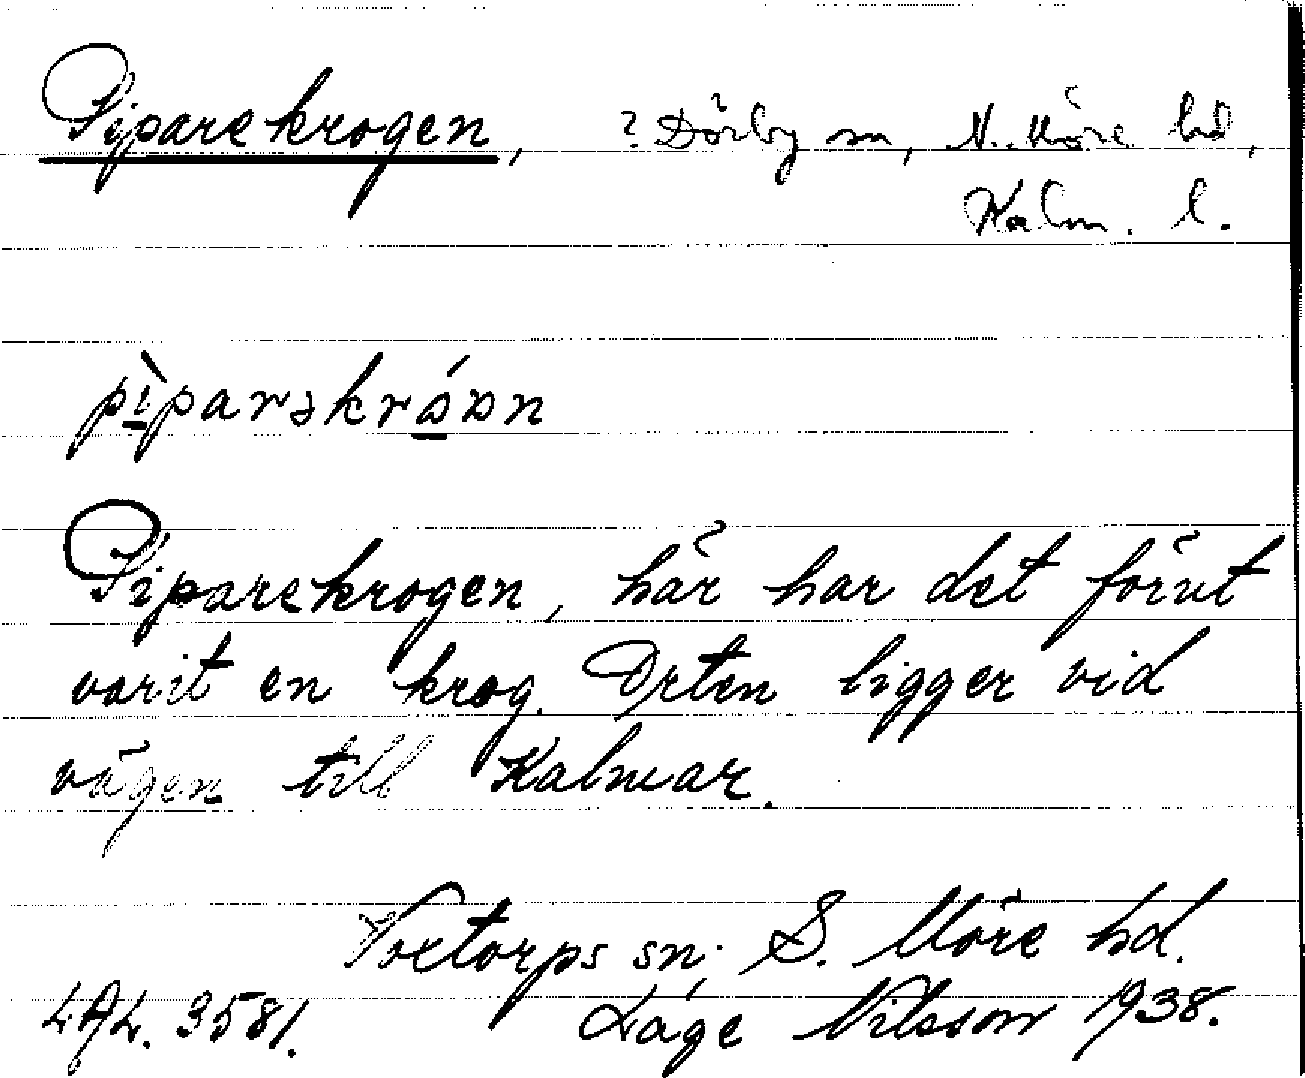 Piparekrogen, ? Dörby sn, N. Möre hd,
Kalm. l.
pìparəkróɷn
Piparekrogen, här har det förut
varit en krog. Orten ligger vid
vägen till Kalmar.
Voxtorps sn; S. Möre hd.
LAL. 3581. Låge Nilsson 1938.